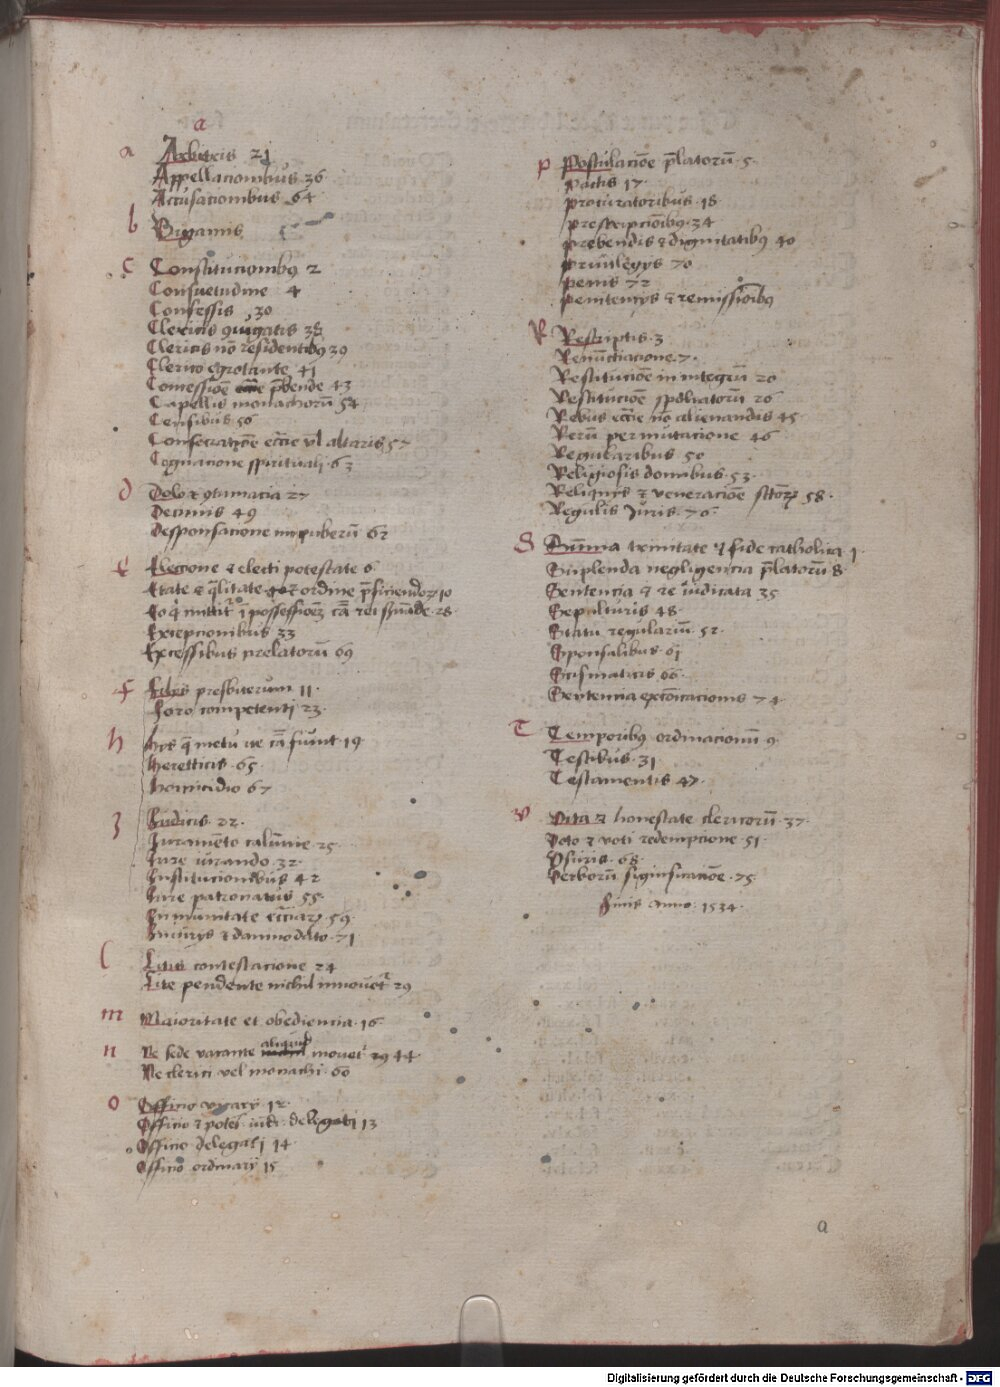 a
a Arbitris 21
Appellacionibus 36
Accusacionibus 64
b Bigamis
c Constitucionibꝯ 2
Consuetudine 4
Confessis 30
Clericis ꝯiugatis 38
Clericis nō residentibꝯ 39
Clerico egrotante 41
Concessiōe p̄bende 43
Capellis monachorū 54
Censibus 56
Consecratiōe eccͥe vl altaris 57
Cognacione spirituali 63
d Dolo ⁊ ꝯtumacia 27
Decimis 49
Desponsacione impuberū 62
e Eleccione ⁊ electi potestate 6
Etate ⁊ q̄litate ordine p̄ficiendoꝝ 10
Eo q̇ mittitᷣ ī possessionē cā rei 28
Excepcionibus 33
Excessibus prelatorū 69
f Filiis presbiterum 11
Foro competenti 23
h Hys q̄ metu ue cā fiunt 19
Hereticis 65
Homicidio 67
J Iudicis 22
Iuramēto calūnie 25
Iure iurando 32
Institucionibus 42
Iure patronatus 55
Inmunitate ecc̄iaꝝ 59
Iniuriis ⁊ damno dato 71
l Litis contestacione 24
Lite pendente nichil innouet 29
m Maioritate et obediencia 16
n Ne sede vacante aliquid innouet 44
Ne clerici vel monachi 60
o Officio vicarij 12
Officio ⁊ potes iudi delegati 13
Officio delegati 14
Officio ordinarij 15
p Postulaciōe p̄latorū 5
Pactis 17
Procuratoribus 18
Prescripcionibꝯ 34
Prebendis ⁊ dignitatibꝯ 40
Priuilegys 70
Penis 72
Penitencys ⁊ remissiōibꝯ
R Rescriptis 3
Renūctiacione 7
Restituciōe in integrū 20
Restituciōe spoliatorū 26
Rebus ecc̄ie nō alienandis 45
Rerū permutacione 46
Regularibus 50
Religiosis domibus 53
Reliquijs ⁊ veneraciōe sctōꝝ 58
Regulis Iuris 76
S Sūma trinitate ⁊ fide catholica 1
Suplenda negligencia p̄latorū 8
Sentencia ⁊ re iudicata 35
Sepulturis 48
Statu regulariū 52
Sponsalibus 61
Scismaticis 66
Sentencia excōicacionis 74
T Temporibꝯ ordinacionū 9
Testibus 31
Testamentis 47
V Vita ⁊ honestate clericorū 37
Voto ⁊ voti redempcione 51
Vsuris 68
Verborū significaciōe 75
Finis anno 1534
a
Digitalisierung gefördert durch die Deutsche Forschungsgemeinschaft - DFG